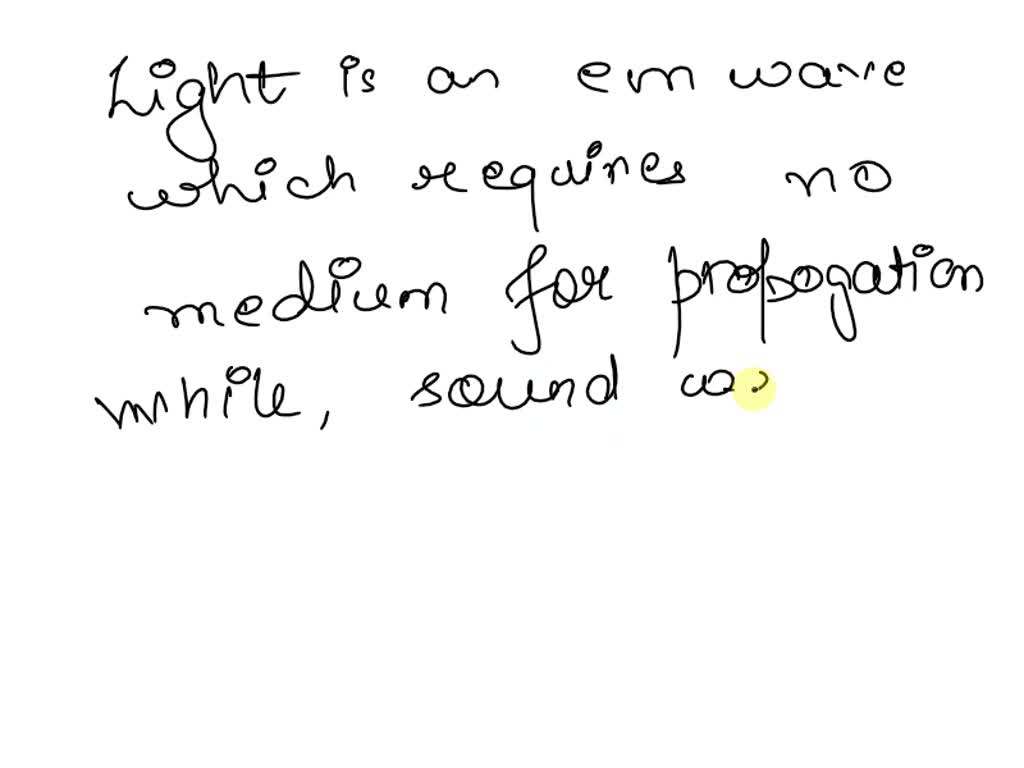 Light is an em wave
which requires no
medium for propogation
while, sound